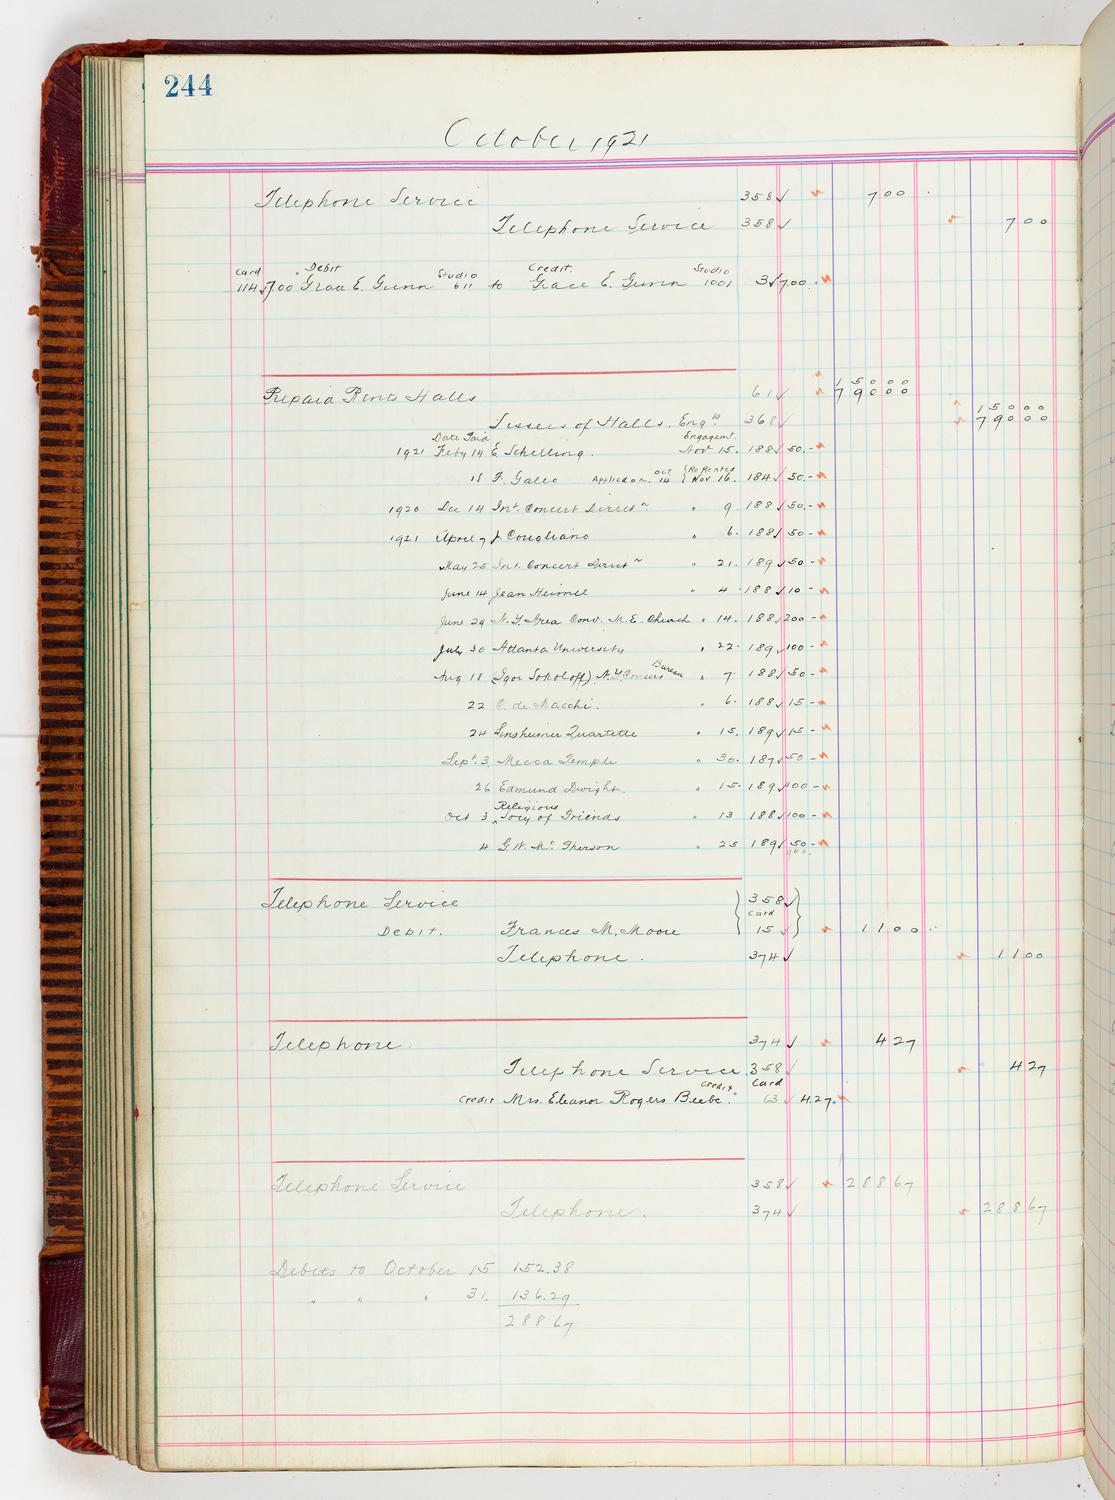 244
October 1921
Telephone Service 358✓ 7 00
Telephone Service 358✓ 7 00
Card Debit Studio Credit. Studio
114✓ 7.00 Grace E. Gunn 611 to Grace E. Gunn 1001 3✓ 7.00
150 00
Prepaid Rents Halls 61✓ 790 00
150 00
Lessees of Halls. Eng'ts 368✓ 790 00
Date Paid Engagemt.
1921 Feby 14 E Schelling. Nov 15. 188✓ 50.-
18 F. Galeo Applied on. Oct 14 { ReRented Nov 16. 184✓ 50.-
1920 Dec 14 Int. Concert Direct'n " 9 188✓ 50.-
1921 April 7 J. Corigliano " 6. 188✓ 50-
May 25 Int. Concert Direct'n " 21. 189✓ 50-
June 14 Jean Heimel " 4 188✓ 10-
June 29 N.Y. Area Conv. M.E. Church " 14. 188✓ 200-
July 30 Atlanta University " 22. 189✓ 100-
Aug 18 (Igor Sokoloff) N.Y. Concert Bureau " 7. 188✓ 50-
22 C. de Macchi. " 6. 188✓ 15-
24 Linsheimer Quartette " 15. 189✓ 15-
Sept. 3 Mecca Temple " 30. 187✓ 50-
26 Edmund Dwight. " 15. 189✓ 100-
Oct 3 Religious Socy of Friends " 13 188✓ 100-
4 G.W. McPherson " 25 189✓ 50-
940.
Telephone Service 358✓
Card
Debit. Frances M. Moore 15✓ 11 00
Telephone. 374✓ 11 00
Telephone. 374✓ 4 27
Telephone Service. 358✓ 4 27
Credit Card
Credit Mrs. Eleanor Rogers Beebe. 63✓ 4.27
Telephone Service 358✓ 288 67
Telephone. 374✓ 288 67
Debits to October 15 152.38
" " " 31. 136.29
288 67